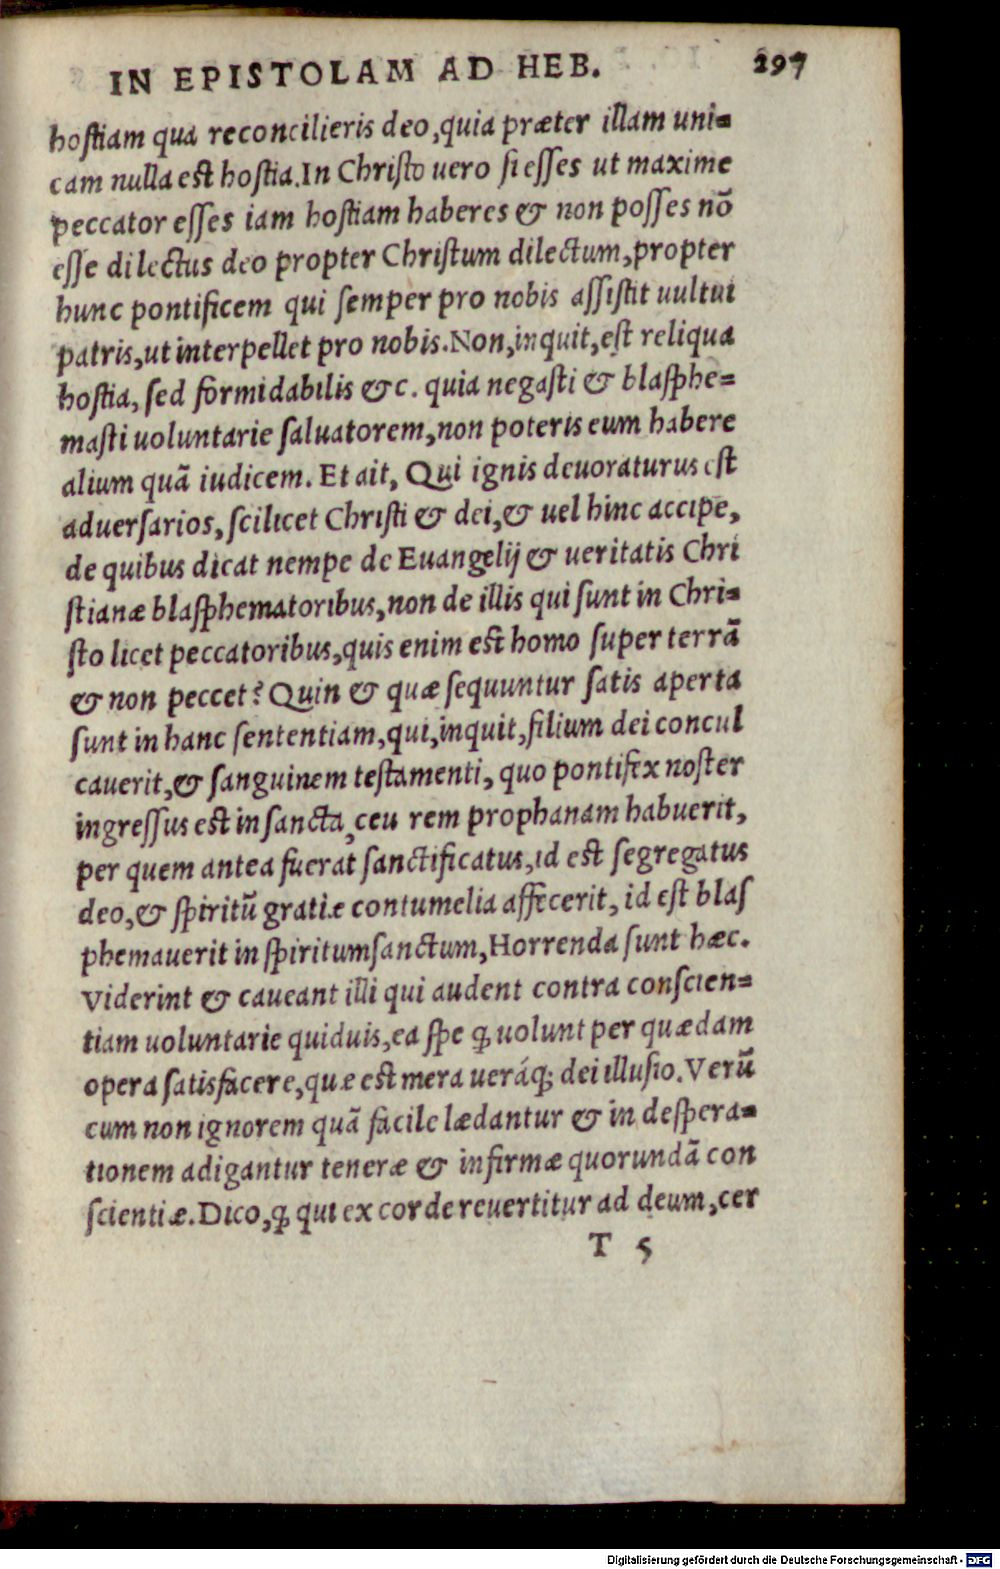 IN EPISTOLAM AD HEB. 297
hostiam qua reconcilieris deo,quia præter illam uni=
cam nulla est hostia.In Christo uero si esses ut maxime
peccator esses iam hostiam haberes & non posses nō
esse dilectus deo propter Christum dilectum,propter
hunc pontificem qui semper pro nobis assistit uultui
patris,ut interpellet pro nobis.Non,inquit,est reliqua
hostia, sed formidabilis &c. quia negasti & blasphe=
masti uoluntarie saluatorem,non poteris eum habere
alium quā iudicem. Et ait, Qui ignis deuoraturus est
aduersarios, scilicet Christi & dei,& uel hinc accipe,
de quibus dicat nempe de Euangelij & ueritatis Chri
stianæ blasphematoribus,non de illis qui sunt in Chri=
sto licet peccatoribus,quis enim est homo super terrā
& non peccet? Quin & quæ sequuntur satis aperta
sunt in hanc sententiam,qui,inquit,filium dei concul
cauerit,& sanguinem testamenti, quo pontifex noster
ingressus est in sancta,ceu rem prophanam habuerit,
per quem antea fuerat sanctificatus,id est segregatus
deo,& spiritū gratiæ contumelia affecerit, id est blas
phemauerit in spiritumsanctum,Horrenda sunt hæc.
Viderint & caueant illi qui audent contra conscien=
tiam uoluntarie quiduis,ea spe ꝙ uolunt per quædam
opera satisfacere,quæ est mera ueráq; dei illusio.Verū
cum non ignorem quā facile lædantur & in despera=
tionem adigantur teneræ & infirmæ quorundā con
scientiæ.Dico,ꝙ qui ex corde reuertitur ad deum,cer
T 5
Digitalisierung gefördert durch die Deutsche Forschungsgemeinschaft - DFG